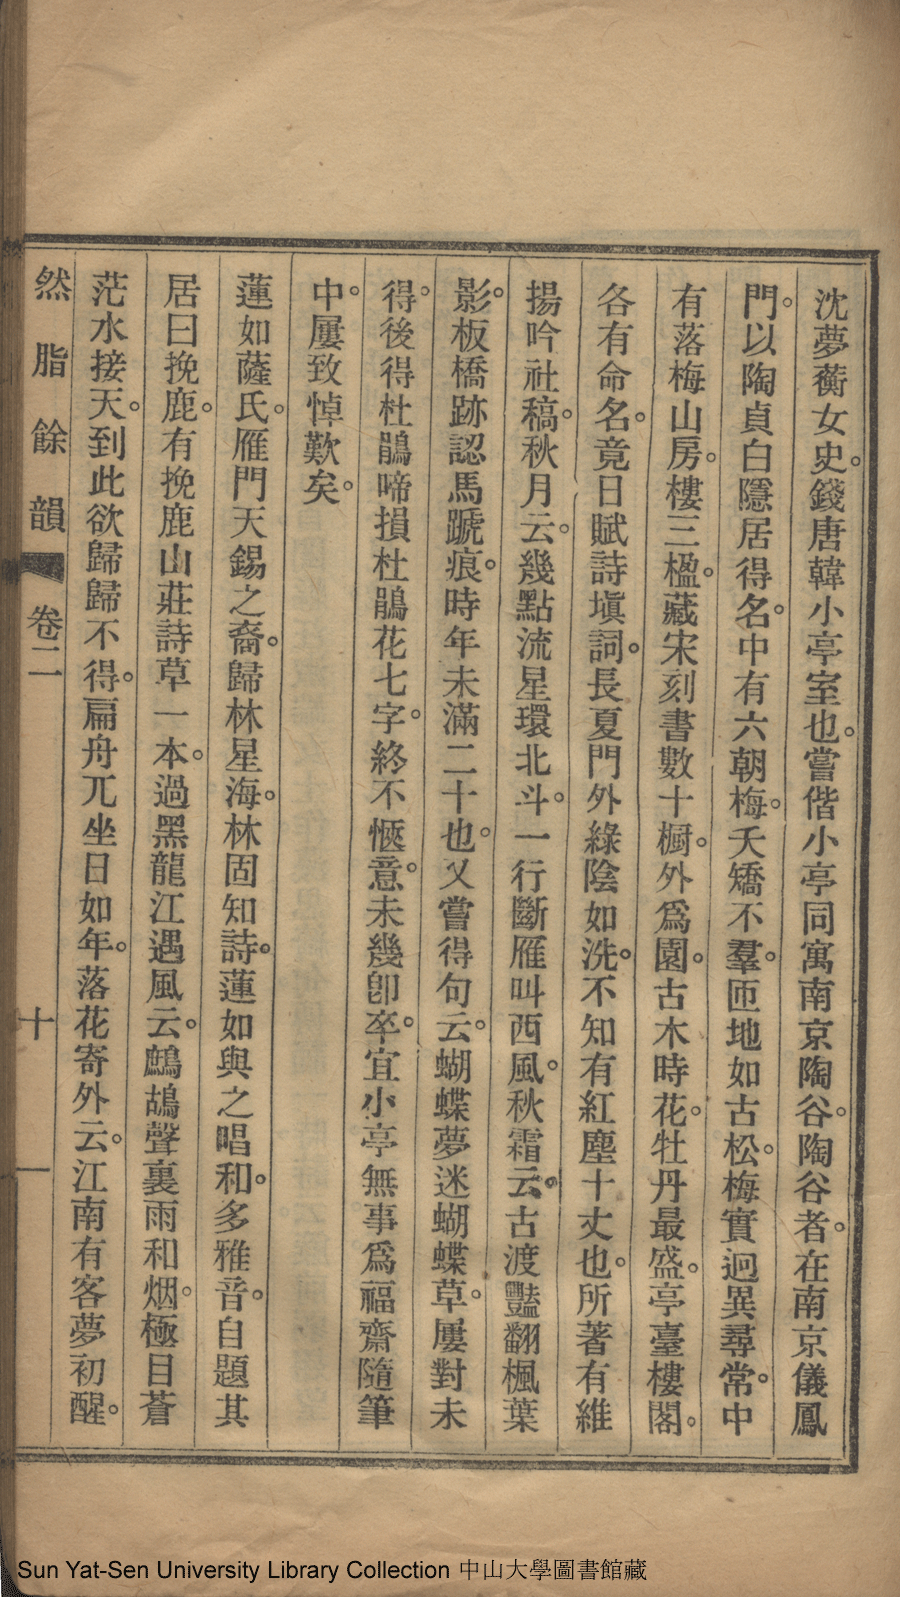 沈夢蘅女史。錢唐韓小亭室也。嘗偕小亭同寓南京陶谷。陶谷者。在南京儀鳳
門。以陶貞白隱居得名。中有六朝梅。夭矯不羣。匝地如古松。梅實迥異尋常。中
有落梅山房。樓三楹。藏宋刻書數十櫥。外爲園。古木時花。牡丹最盛。亭臺樓閣。
各有命名。竟日賦詩塡詞。長夏門外綠陰如洗。不知有紅塵十丈也。所著有維
揚吟社稿。秋月云。幾點流星環北斗。一行斷雁叫西風。秋霜云。古渡豔翻楓葉
影。板橋跡認馬蹏痕。時年未滿二十也。又嘗得句云。蝴蝶夢迷蝴蝶草。屢對未
得。後得杜鵑啼損杜鵑花七字。終不愜意。未幾卽卒。宜小亭無事爲福齋隨筆
中。屢致悼歎矣。
蓮如薩氏。雁門天錫之裔。歸林星海。林固知詩。蓮如與之唱和。多雅音。自題其
居曰挽鹿。有挽鹿山莊詩草一本。過黑龍江遇風云。鷓鴣聲裏雨和烟。極目蒼
茫水接天。到此欲歸歸不得。扁舟兀坐日如年。落花寄外云。江南有客夢初醒。
然脂餘韻 卷二 十一
Sun Yat-Sen University Library Collection 中山大學圖書館藏